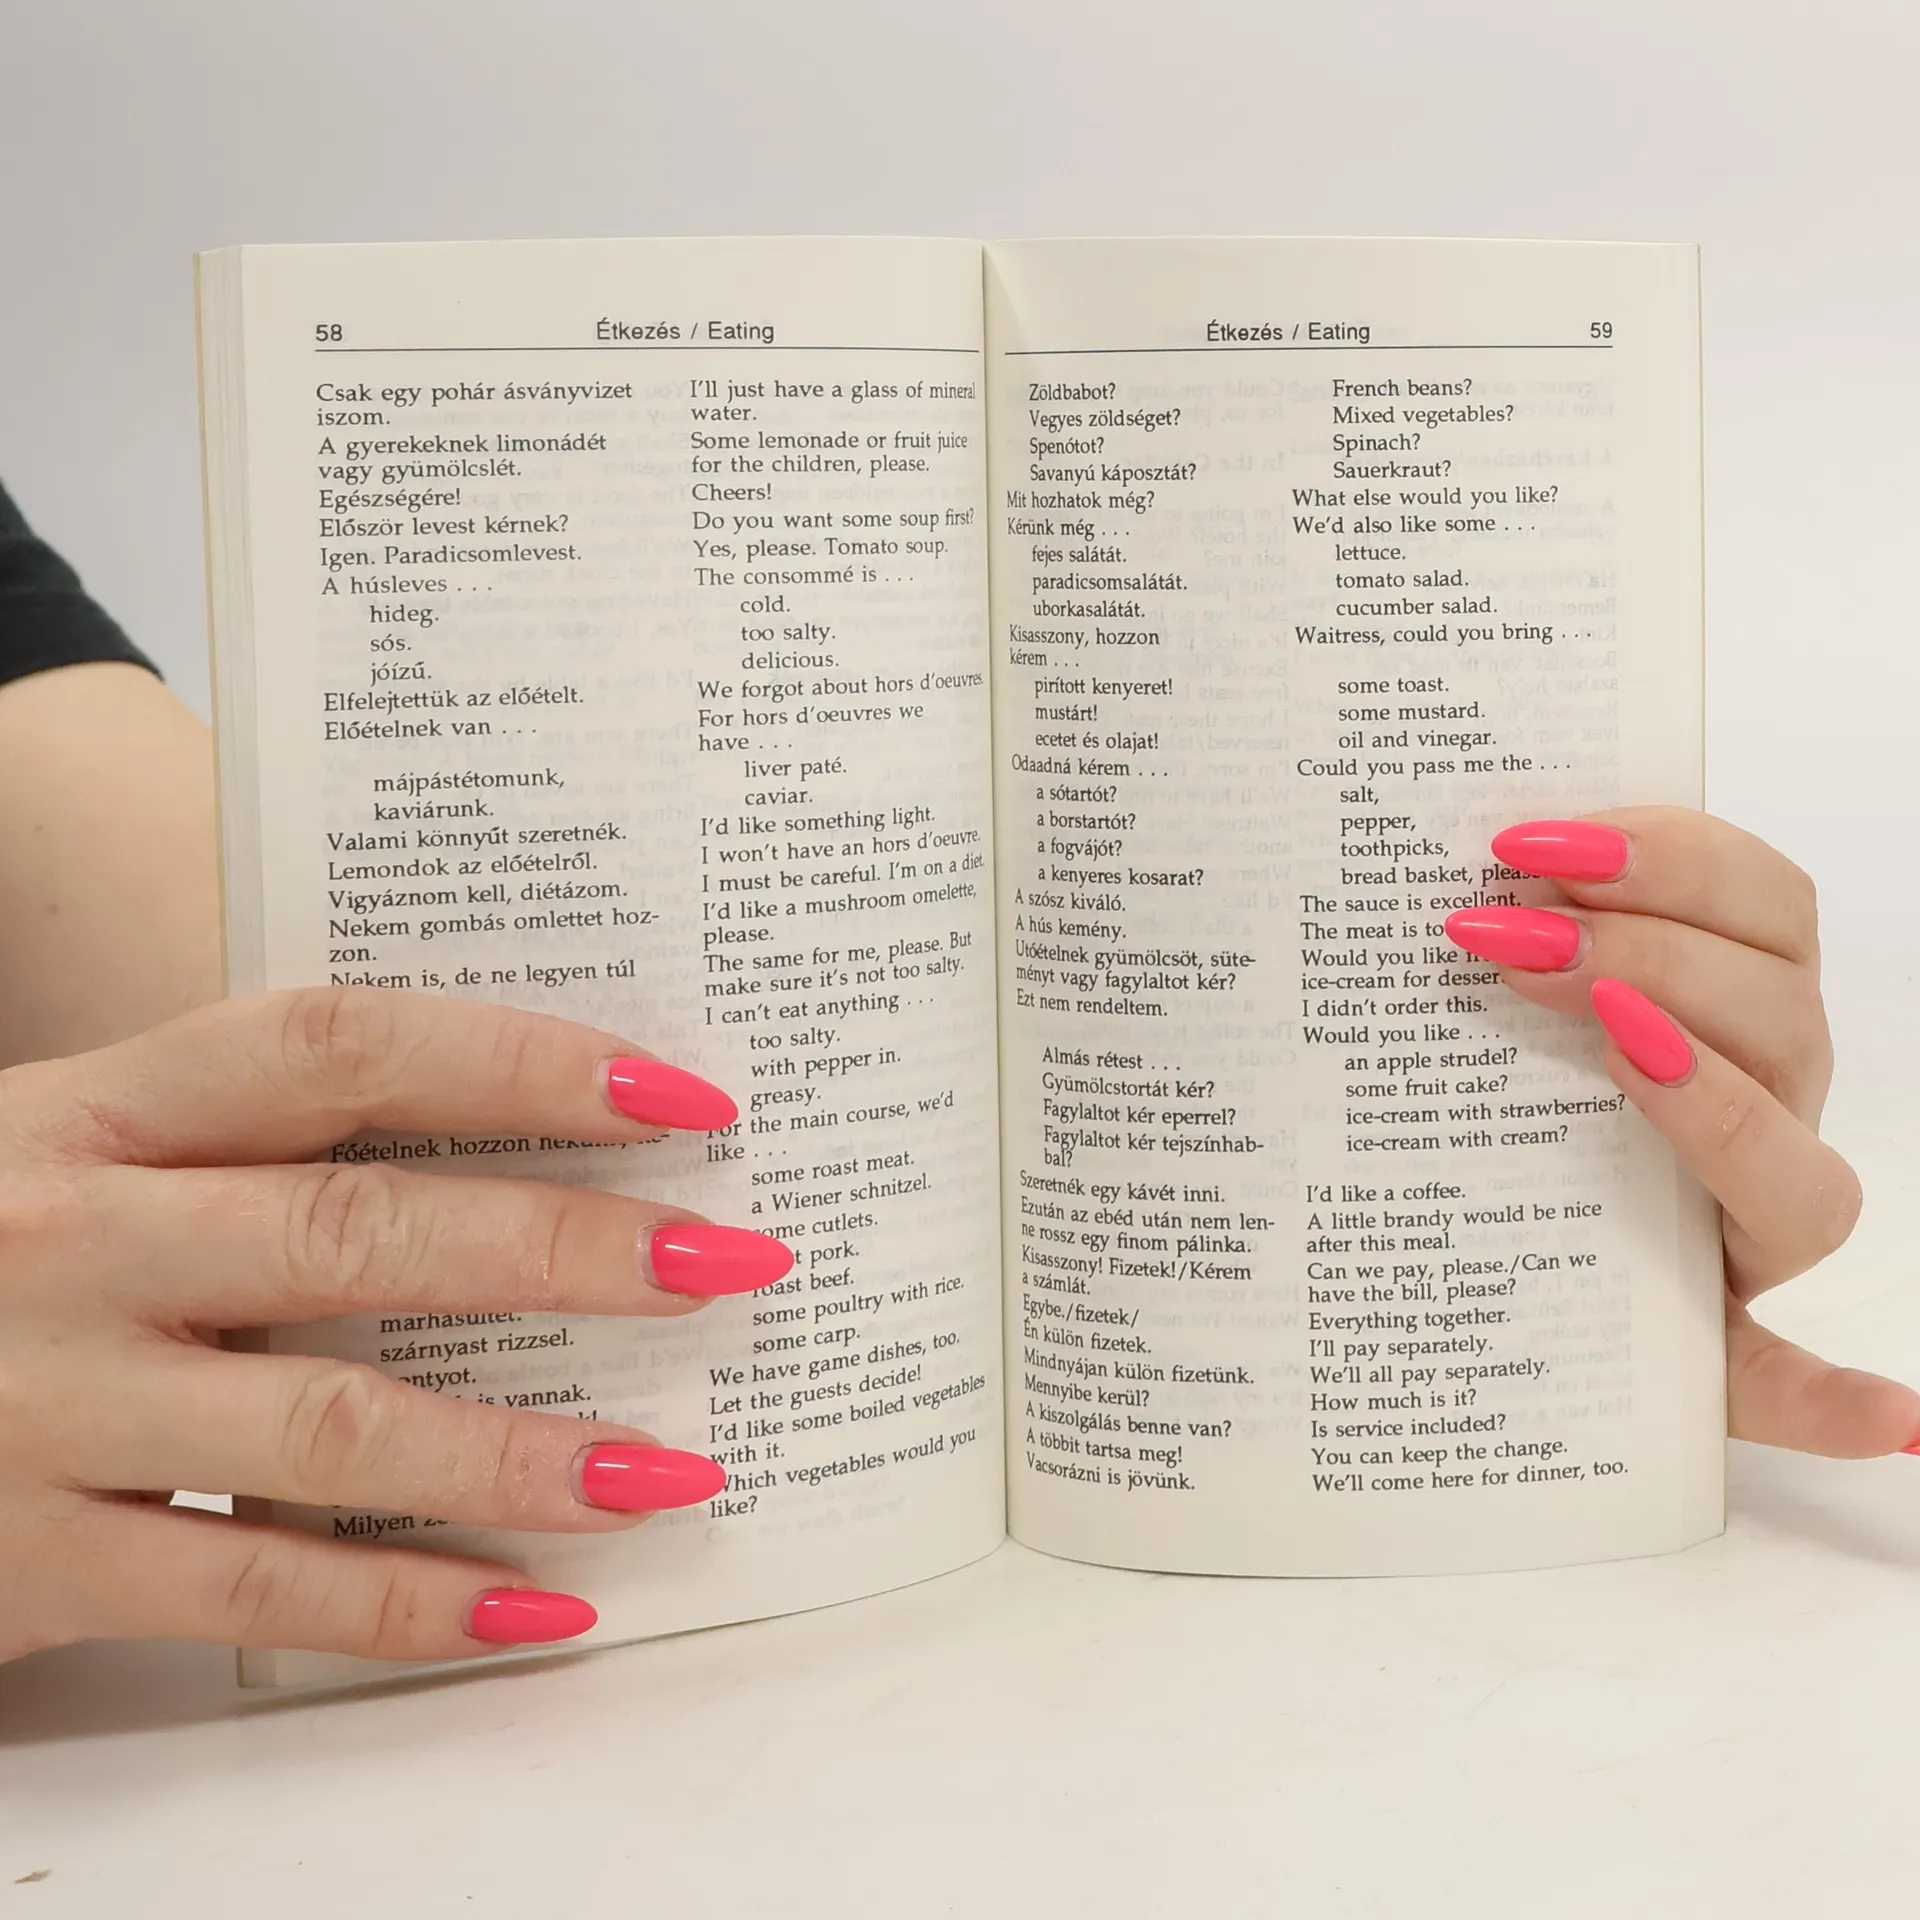 58
Étkezés / Eating
Csak egy pohár ásványvizet
iszom.
A gyerekeknek limonádét
vagy gyümölcslét.
Egészségére!
Először levest kérnek?
Igen. Paradicsomlevest.
A húsleves . . .
hideg.
sós.
jóízű.
Elfelejtettük az előételt.
Előételnek van . . .
májpástétomunk,
kaviárunk.
Valami könnyűt szeretnék.
Lemondok az előételről.
Vigyáznom kell, diétázom.
Nekem gombás omlettet hoz-
zon.
Nekem is, de ne legyen túl
Főételnek hozzon
marhasültet.
szárnyast rizzsel.
is vannak.
Milyen
I'll just have a glass of mineral
water.
Some lemonade or fruit juice
for the children, please.
Cheers!
Do you want some soup first?
Yes, please. Tomato soup.
The consommé is . . .
cold.
too salty.
delicious.
We forgot about hors d'oeuvres.
For hors d'oeuvres we
have . . .
liver paté.
caviar.
I'd like something light.
I won't have an hors d'oeuvre.
I must be careful. I'm on a diet.
I'd like a mushroom omelette,
please.
The same for me, please. But
make sure it's not too salty.
I can't eat anything . . .
too salty.
with pepper in.
greasy.
For the main course, we'd
like . . .
some roast meat.
a Wiener schnitzel.
some cutlets.
pork.
roast beef.
some poultry with rice.
some carp.
We have game dishes, too.
Let the guests decide!
I'd like some boiled vegetables
with it.
Which vegetables would you
like?
Étkezés / Eating
59
Zöldbabot?
Vegyes zöldséget?
Spenótot?
Savanyú káposztát?
Mit hozhatok még?
Kérünk még . . .
fejes salátát.
paradicsomsalátát.
uborkasalátát.
Kisasszony, hozzon
kérem . . .
pirított kenyeret!
mustárt!
ecetet és olajat!
Odaadná kérem . . .
a sótartót?
a borstartót?
a fogvájót?
a kenyeres kosarat?
A szósz kiváló.
A hús kemény.
Utóételnek gyümölcsöt, süte-
ményt vagy fagylaltot kér?
Ezt nem rendeltem.
Almás rétest . . .
Gyümölcstortát kér?
Fagylaltot kér eperrel?
Fagylaltot kér tejszínhab-
bal?
Szeretnék egy kávét inni.
Ezután az ebéd után nem len-
ne rossz egy finom pálinka.
Kisasszony! Fizetek!/Kérem
a számlát.
Egybe./fizetek/
Én külön fizetek.
Mindnyájan külön fizetünk.
Mennyibe kerül?
A kiszolgálás benne van?
A többit tartsa meg!
Vacsorázni is jövünk.
French beans?
Mixed vegetables?
Spinach?
Sauerkraut?
What else would you like?
We'd also like some . . .
lettuce.
tomato salad.
cucumber salad.
Waitress, could you bring . . .
some toast.
some mustard.
oil and vinegar.
Could you pass me the . . .
salt,
pepper,
toothpicks,
bread basket, please.
The sauce is excellent.
The meat is
Would you like
ice-cream for dessert
I didn't order this.
Would you like . . .
an apple strudel?
some fruit cake?
ice-cream with strawberries?
ice-cream with cream?
I'd like a coffee.
A little brandy would be nice
after this meal.
Can we pay, please./Can we
have the bill, please?
Everything together.
I'll pay separately.
We'll all pay separately.
How much is it?
Is service included?
You can keep the change.
We'll come here for dinner, too.